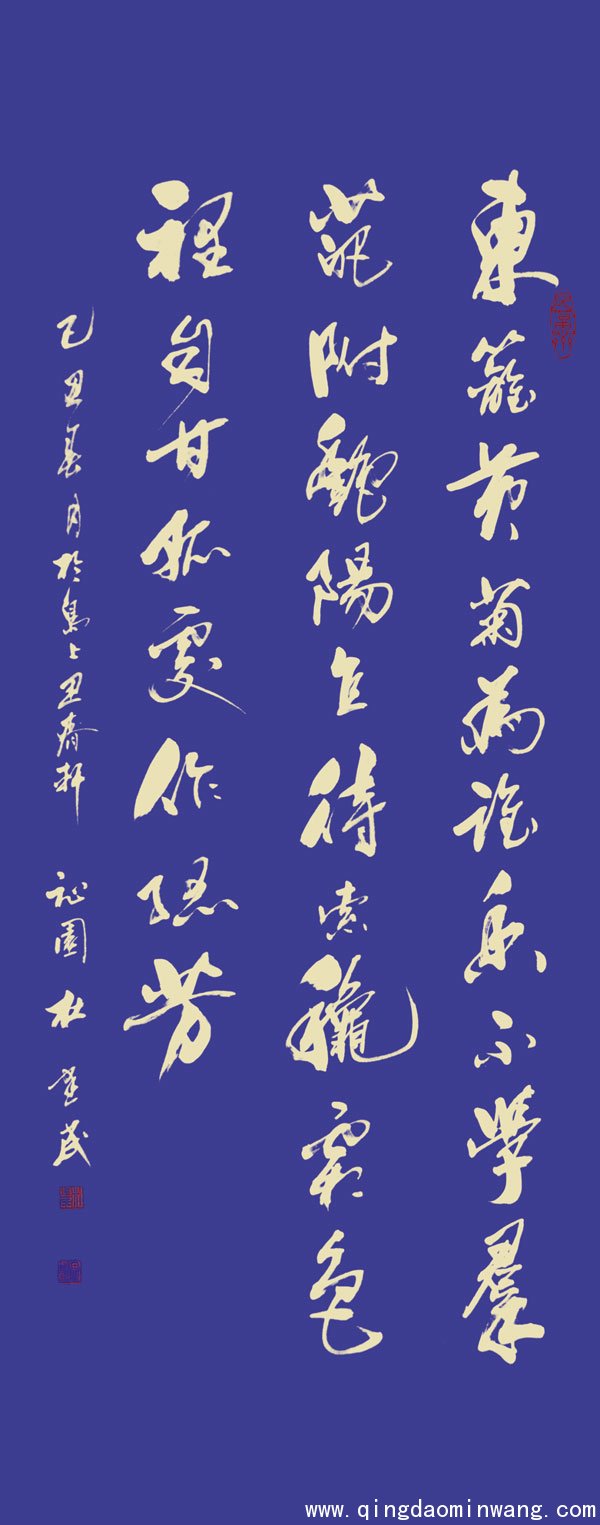 東籬黄菊為誰香不學羣
葩附艷陽直待素龝霜色
裡自甘孤處作芳
己丑月於島上丑齋軒 園 杜民
www.qingdaominwang.com